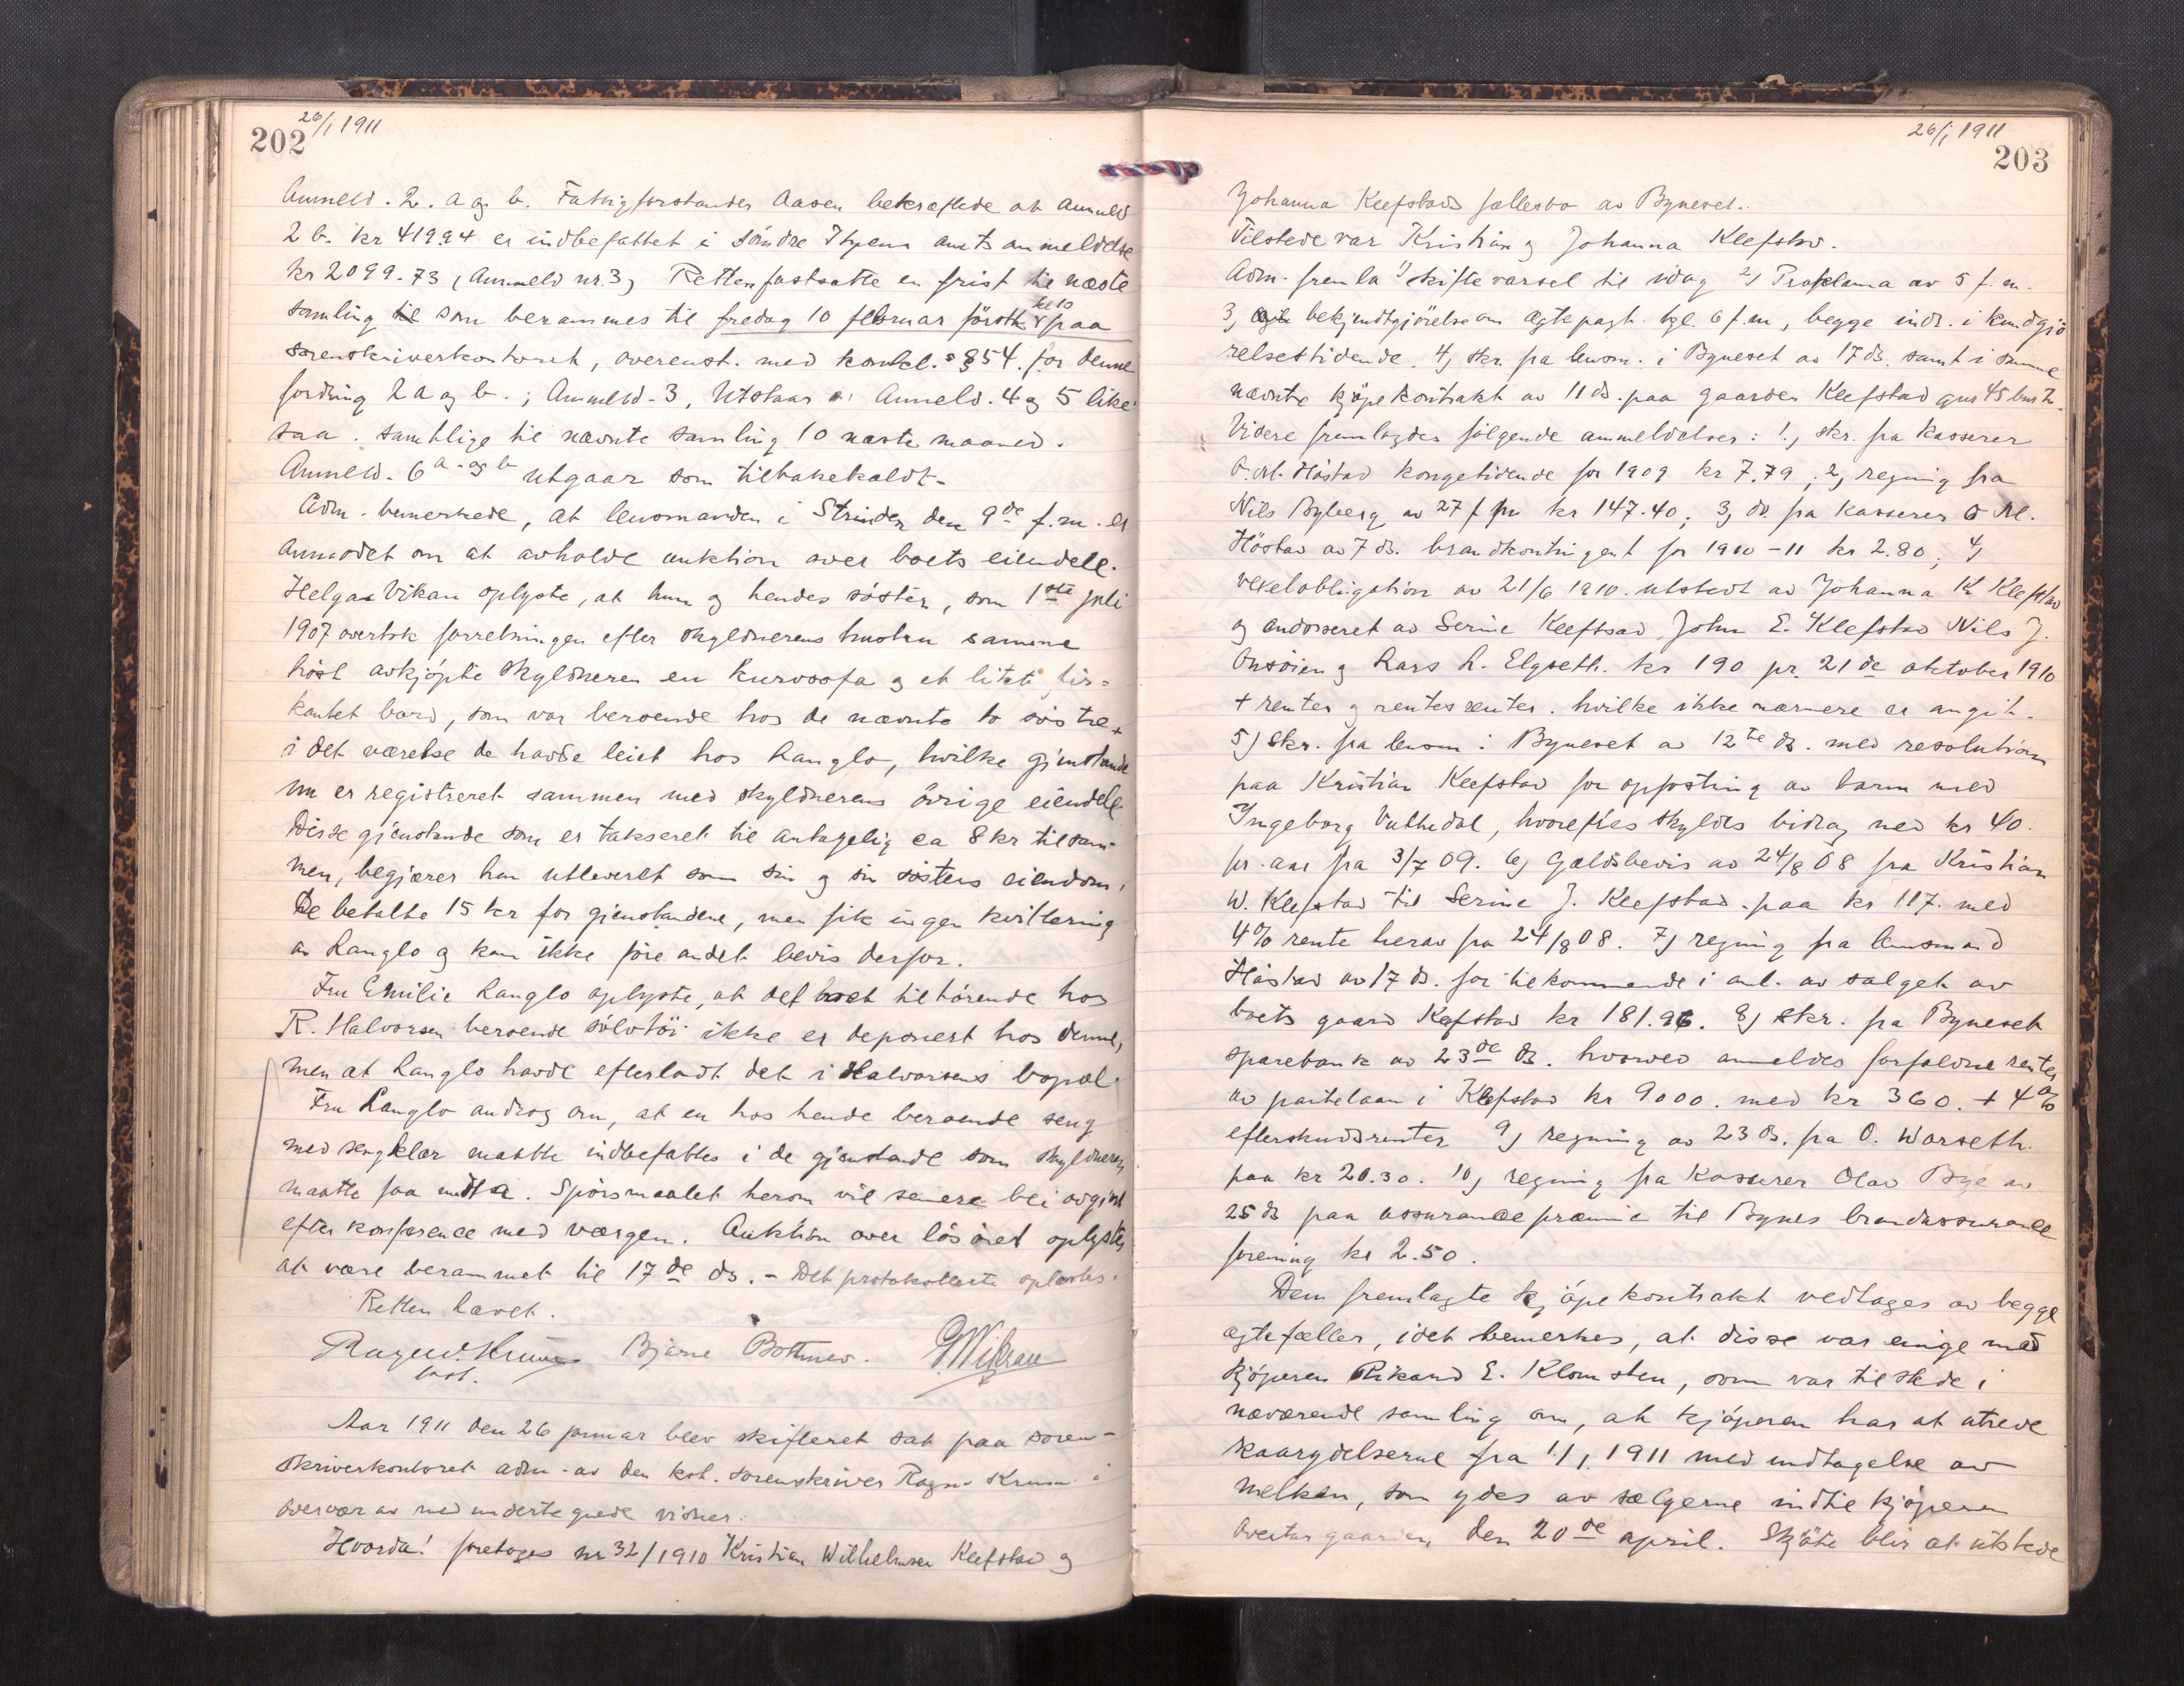 26/1 1911
202
Anmeld. 2. a og b. Fattigforstander Aasen bekræftede at anmeld
2 b. kr 419.94 er indbefattet i søndre Thjems amts anmeldelse
kr 2099.73 (Anmeld nr. 3) Retten fastsatte en frist til næste
samling som berammes til fredag 10 februar førstk. kl 10 paa
sorenskriverkontoret, overenst. med konkl.s § 54. for denne
fordring 2 a og b.; Anmeld. 3, Utstaar Anmeld. 4 og 5 like
saa. samtlige til nævnte samling 10 næste maaned.
Anmeld. 6 a. og b utgaar som tilbakekaldt.
Adm. bemerkede, at lensmanden i Strinden den 9de f.m. er
anmodet om at avholde auktion over boets eiendele.
Helga Vikan oplyste, at hun og hendes søster, som 1ste juli
1907 overtok forretningen efter skyldnerens hustru samme
høst avkjøpte skyldneren en kurvsofa og et litet fir-
kantet bord, som var beroende hos de nævnte to søstre
i det værelse de havde leiet hos Langlo, hvilke gjenstande
nu er registreret sammen med skyldnerens øvrige eiendele.
Disse gjenstande som er takseret til antagelig ca 8 kr tilsam-
men, begjærer hun utleveret som sin og sin søsters eiendom.
De betalte 15 kr for gjenstandene, men fik ingen kvittering
av Langlo og kan ikke føre andet bevis derfor.
Fru Emilie Langlo oplyste, at det boet tilhørende hos
R. Halvorsen beroende sølvtøi ikke er deponert hos denne,
men at Langlo havde efterladt det i Halvorsens bopæl.
Fru Langlo androg om, at en hos hende beroende seng
med sengklær maatte indbefattes i de gjenstande som skyldneren
maatte faa undta. Spørsmaalet herom vil senere bli avgjort
efter konference med værgen. Auktion over løsøret oplystes
at være berammet til 17de ds. - Det protokollerte oplæstes.
Retten hævet.
Bjarne
const.
Aar 1911 den 26 januar blev skifteret sat paa soren-
skriverkontoret adm. av den kst. sorenskriver Ragnv. Krum i
overvær av med undertegnede vidner.
Hvorda! foretoges nr 32/1910 Kristian Wilhelmsen Klefstad og
26/1 1911
203
Johanna Klefstads fællesbo av Bynesset.
Tilstede var Kristian og Johanna Klefstad.
Adm. fremla 1) skiftevarsel til idag 2) Proklama av 5 f.m.
3) bekjendtgjørelse om ægtepagt. tgl. 6 f.m, begge indr. i kundgjø
relsestidende. 4) skr. fra lensm. i Bynesset av 17 ds. samt i samme
nævnte kjøpekontrakt av 11 ds. paa gaarden Klefstad gnr 45 bnr
Videre fremlagdes følgende anmeldelser: 1., skr. fra kasserer
O. M. Høstad kongetiende for 1909 kr 7.79; 2) regning fra
Nils Byberg av 27 f.m kr 147.40; 3) ds. fra kasserer O M.
Høstad av 7 ds. brandkontingent for 1910-11 kr 2.80; 4)
vexelobligation av 21/6 1910. utstedt av Johanna K Klefstad
og endosseret av Serine Klefstad, John E. Klefstad Nils J.
Onsøien og Lars L. Elgseth. kr 190 pr. 21de oktober 1910
+ renter og rentesrenter. hvilke ikke nærmere er angit.
5) Skr. fra lensm i Bynesset av 12te ds. med resolution
paa Kristian Klefstad for opfostring av barn med
Ingeborg Vuttudal, hvorefter skyldes bidrag med kr 40.
pr. aar fra 3/7 09. 6) Gjældsbevis av 24/8 08 fra Kristian
W. Klefstad til Serine J. Klefstad. paa kr 117. med
4% rente herav fra 24/8 08. 7) regning fra lensmand
Høstad av 17 ds. for tilkommende i anl. av salget av
boets gaard Klefstad kr 181.96. 8) skr. fra Bynesset
sparebank av 23de ds. hvorved anmeldes forfaldne renter
av pantelaan i Klefstad kr 9000. med kr 360. + 4%
efterskudsrenter 9) regning av 23 ds. fra O. Warseth.
paa kr 20.30. 10) regning fra Kasserer Olav Bye av
25 ds paa assurancepræmie til Bynes brandassurance
forening kr 2.50.
Den fremlagte kjøpekontrakt vedtages av begge
egtefæller, idet bemerkes, at disse var enige med
kjøperen Rikard E. Klomsten, som var tilstede i
nærværende samling om, at kjøperen har at utrede
kaarydelserne fra 1/1 1911 med undtagelse av
melken, som ydes av sælgerne indtil kjøperen
overtar gaarden, den 20de april. Skjøte blir at utstede